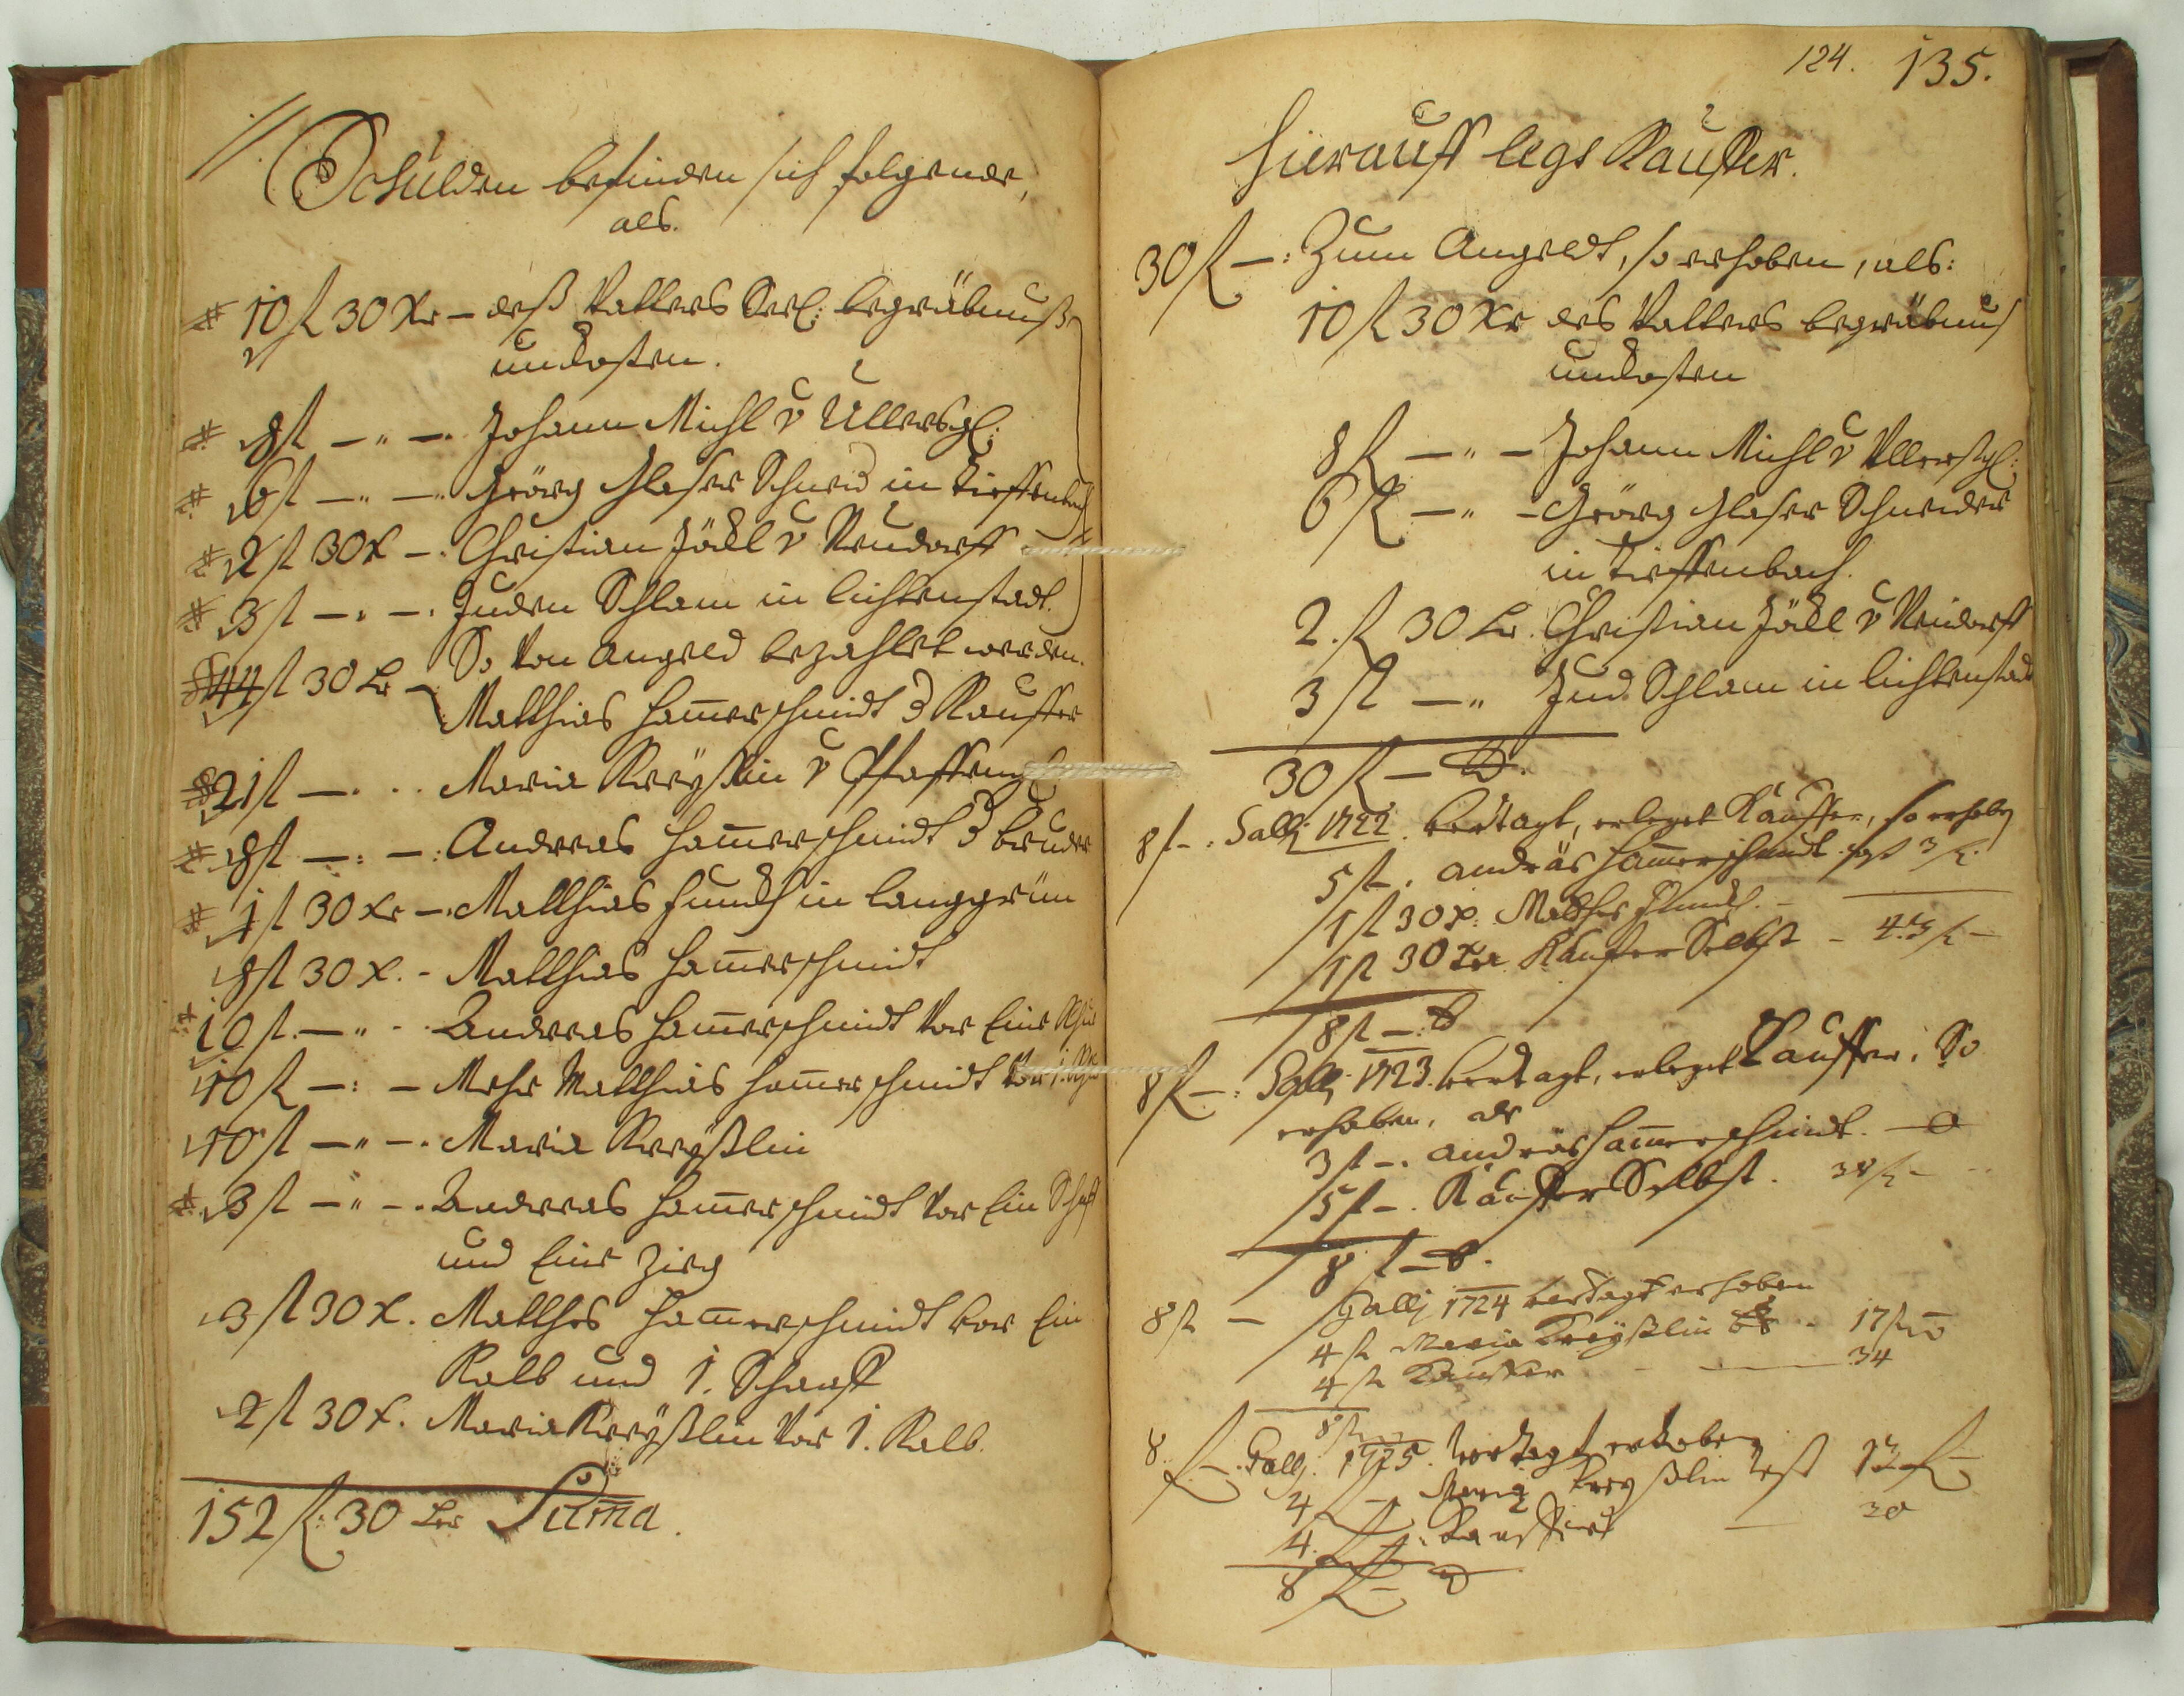 Schulden befinden sich folgende,
als.
10 fl 30 Xr – deß Vatters Seel: begräbnuß
unkosten.
8 fl – " – Johann Michl v Ullersgl:
6 fl – " – Geörg Glaser Schneid in Tieffenbach
2 fl 30 X – Christian Jäckl v Neudorff
3 fl – " – Juden Schlam in lichtenstadt.
So Von Angeld bezahlet werden.
44 fl 30 kr – Matthias Hamerschmidt d Kauffer
21 fl – Maria Kreÿßlin v
8 fl – : – : Andreas Hamerschmidt d bruder
1 fl 30 xr – Matthias Funckh in langgrün
8 fl 30 X. – Matthias Hamerschmidt
10 fl. – " – Andreas Hamerschmidt Vor Eine
10 fl – : – Mehr Matthias Hamerschmidt Vor 1.
10 fl – " – Maria Kreÿßlin
3 fl – " – Andreas Hamerschmidt Vor Ein Schaff
und Eine Zieg
3 fl 30 X. Matthes Hamerschmidt vor Ein
Kalb und 1. Schaaff
2 fl 30 X. Maria Kreÿßlin Vor 1. Kalb.
152 fl: 30 kr Suma.
124. 135.
hierauff legt Kauffer.
30 fl – : Zum Angeldt, so erhoben, als:
10 fl 30 Xr des Vatters begräbnus
unkosten
8 fl – " – Johann Michl v Ullersgl:
6 fl – " – Geörg Glaser Schneider
in Tieffenbach.
2. fl 30 kr. Christian Jäckl v Neudorff
3 fl – " Jud. Schlam in lichtenstadt
30 fl –
8 fl – : Gallj 1722. Vertagt, erleget Kauffer, so erhoben
5 fl –. Andräs Hamerschmidt. 3 fl.
1 fl 30 X: Matthes Funckh. –
1 fl 30 Xer Kauffer Selbst – 43 fl –
8 fl –
8 fl – : Gallj 1723. Vertagt, erleget Kauffer, So
erhoben, als
3 fl –. Andräs Hamerschmidt. – 0
5 fl –. Kauffer Selbst. 38 fl –
8 fl –
8 fl – Gallj 1724 vertagt erhoben
4 fl Maria Kreÿßlin 17 fl
4 fl Kauffer – 34
8 fl
8. fl –. Gallj. 1725. Vertagt erhoben
4 fl – Maria Kreyßlin Rest 13 fl –
4. fl – : Kauffer – 30
8 fl –